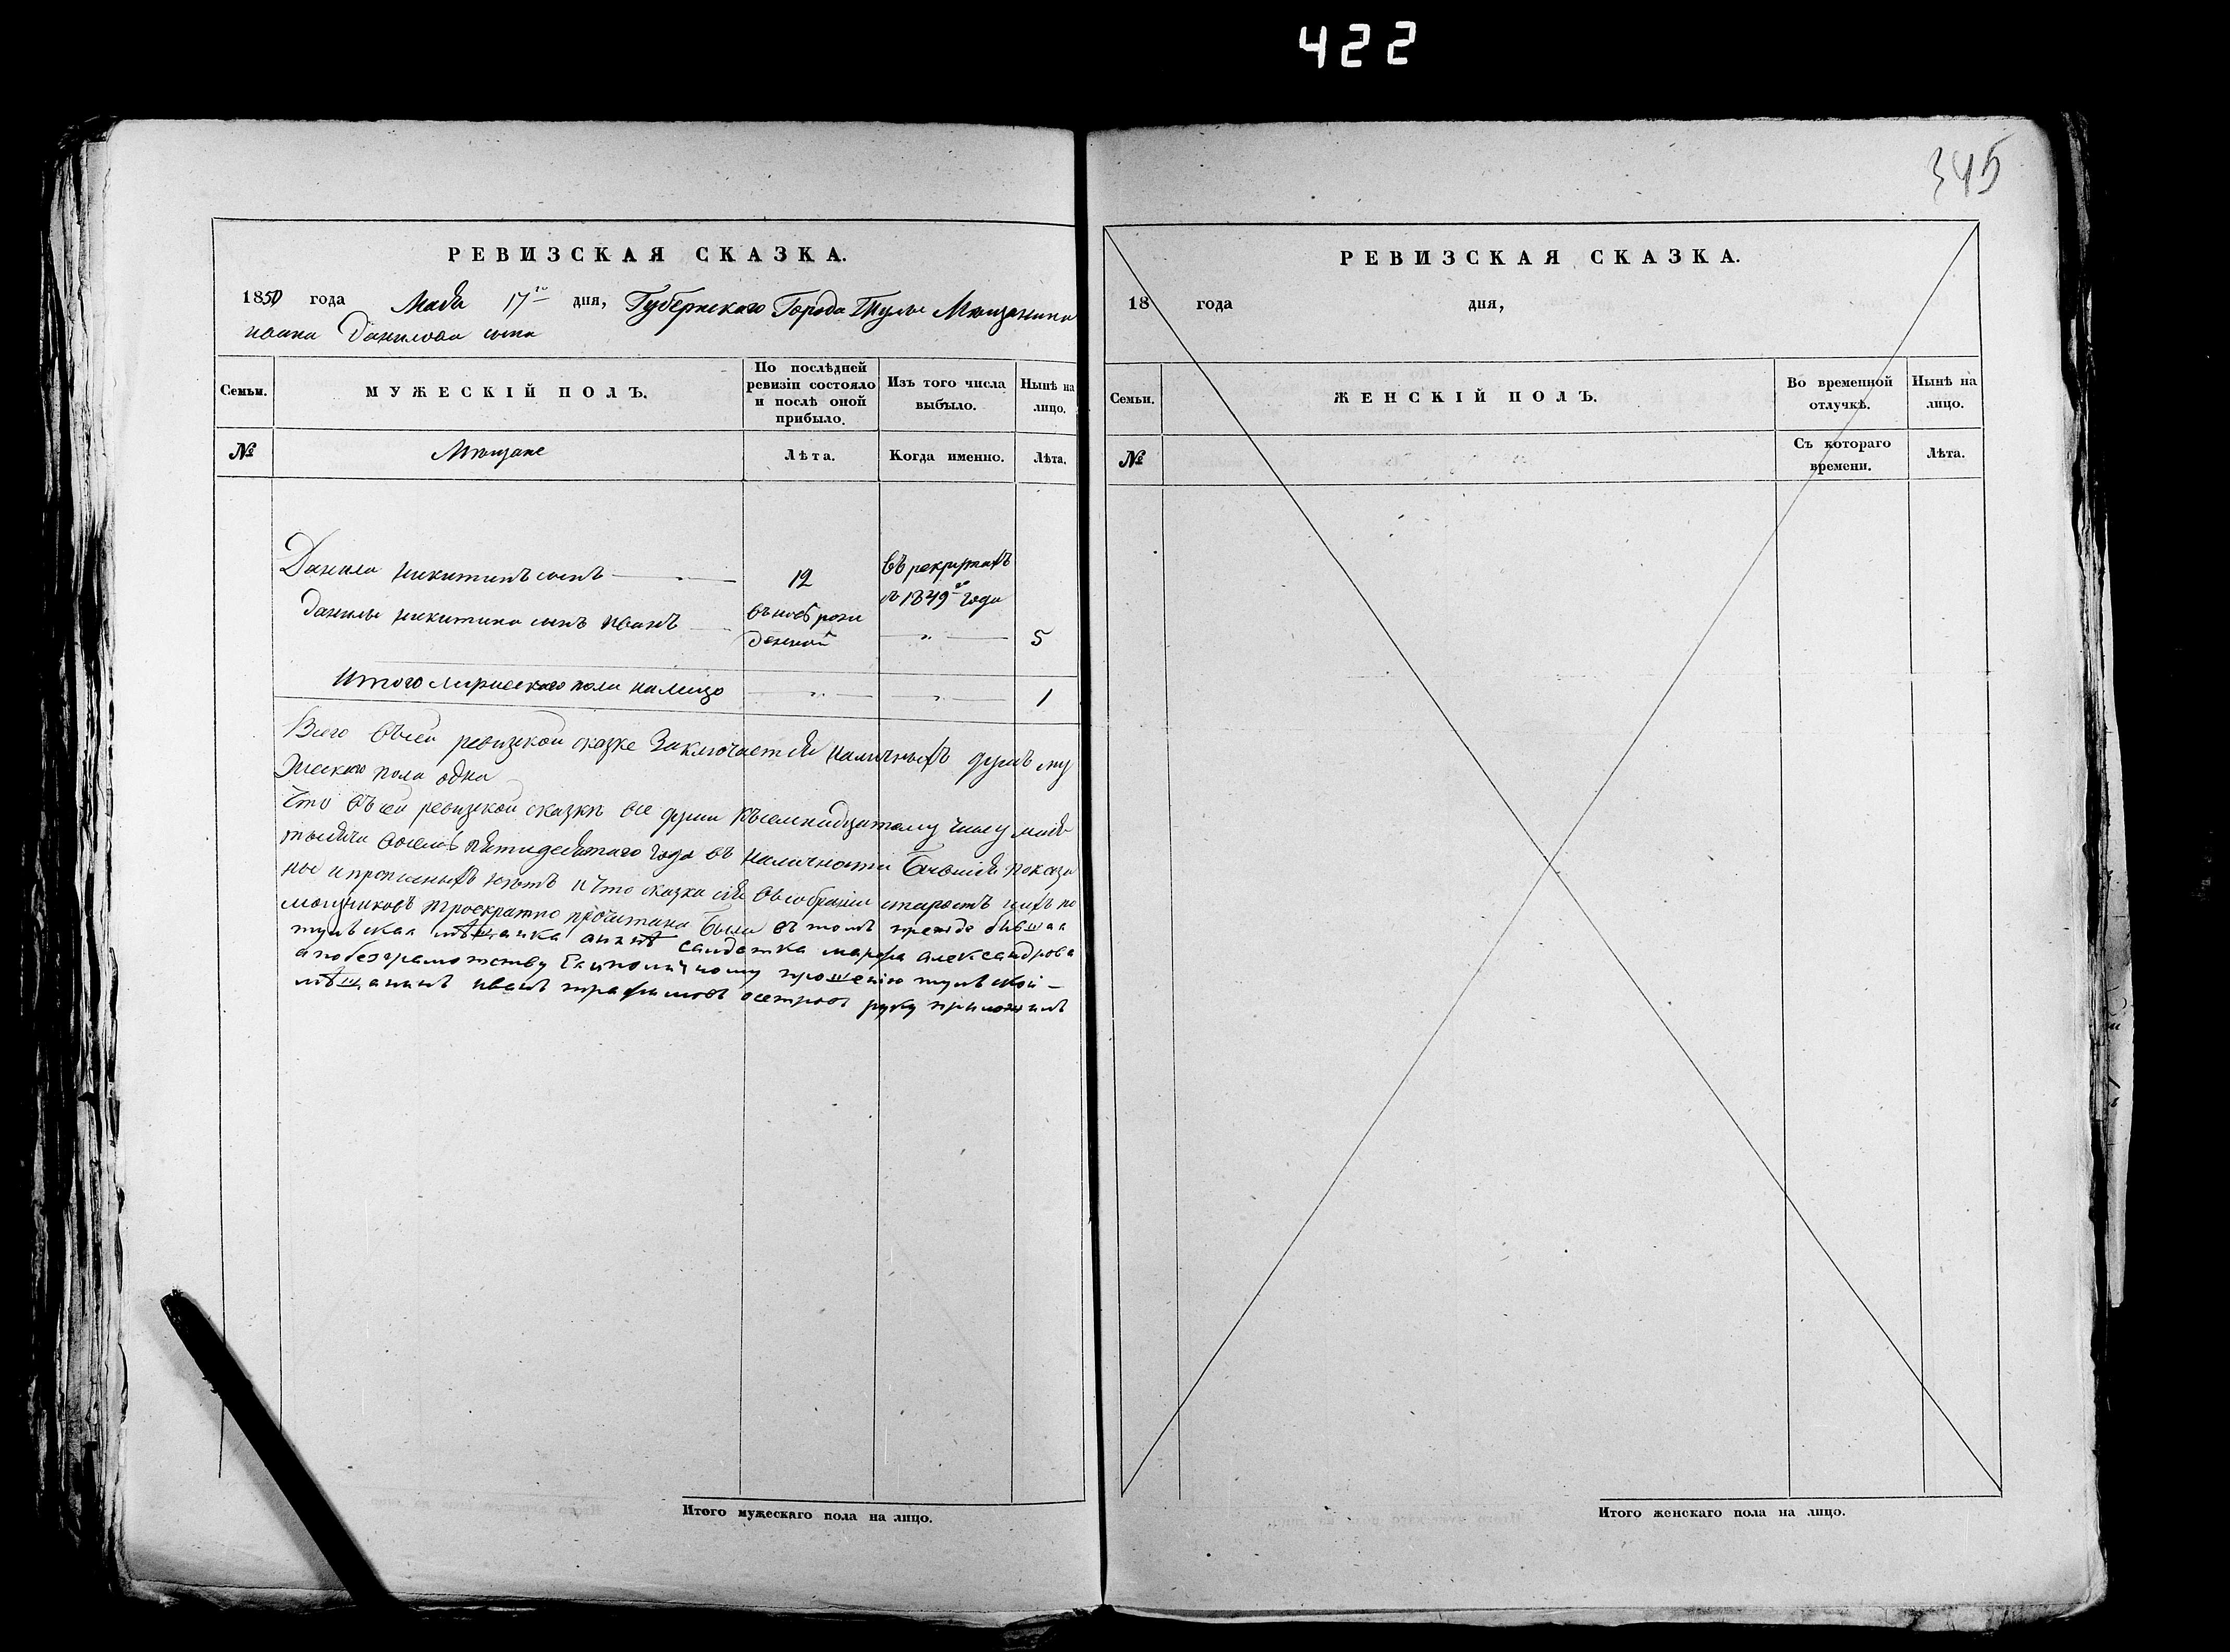 422
345
РЕВИЗСКАЯ СКАЗКА.
1850 года Маія 17го дня, Губернскаго Города Тулы Мѣщанина
ивана Данилова сына
Семьи. МУЖЕСКІЙ ПОЛЪ. По послѣдней ревизіи состояло и послѣ оной прибыло. Изъ того числа выбыло. Нынѣ на лицо.
№ Мѣщане Лѣта. Когда именно. Лѣта.
Данила никитинъ сынъ 12 въ рекрутахъ
съ 1849го года
данилы никитина сынъ иванъ вновь рож
денной " 5
Итого мужескаго пола налицо " " 1
Всего въсей ревизской сказке Заключается наличныхъ душъ му
жескаго пола одна
Что въсей ревизской сказкѣ все души къ семнадцатому числу маія
тысяча восемь пятидесятаго года въ наличности Бывшія показа
ны и прописныхъ нѣтъ и что сказка сія въ собраніи старостъ и ихъ по
мощниковъ троекратно прочитана была въ томъ прежде бывшая
тульская мѣщанка анынѣ салдатка марфа александрова
а побезграмотству Ея и поличному прошенію тульской
мѣщанинъ иванъ трафимовъ осетровъ руку приложилъ
Итого мужескаго пола на лицо.
РЕВИЗСКАЯ СКАЗКА.
18 года дня,
Семьи. ЖЕНСКІЙ ПОЛЪ. Во временной отлучкѣ. Нынѣ на лицо.
№ Съ котораго времени. Лѣта.
Итого женскаго пола на лицо.